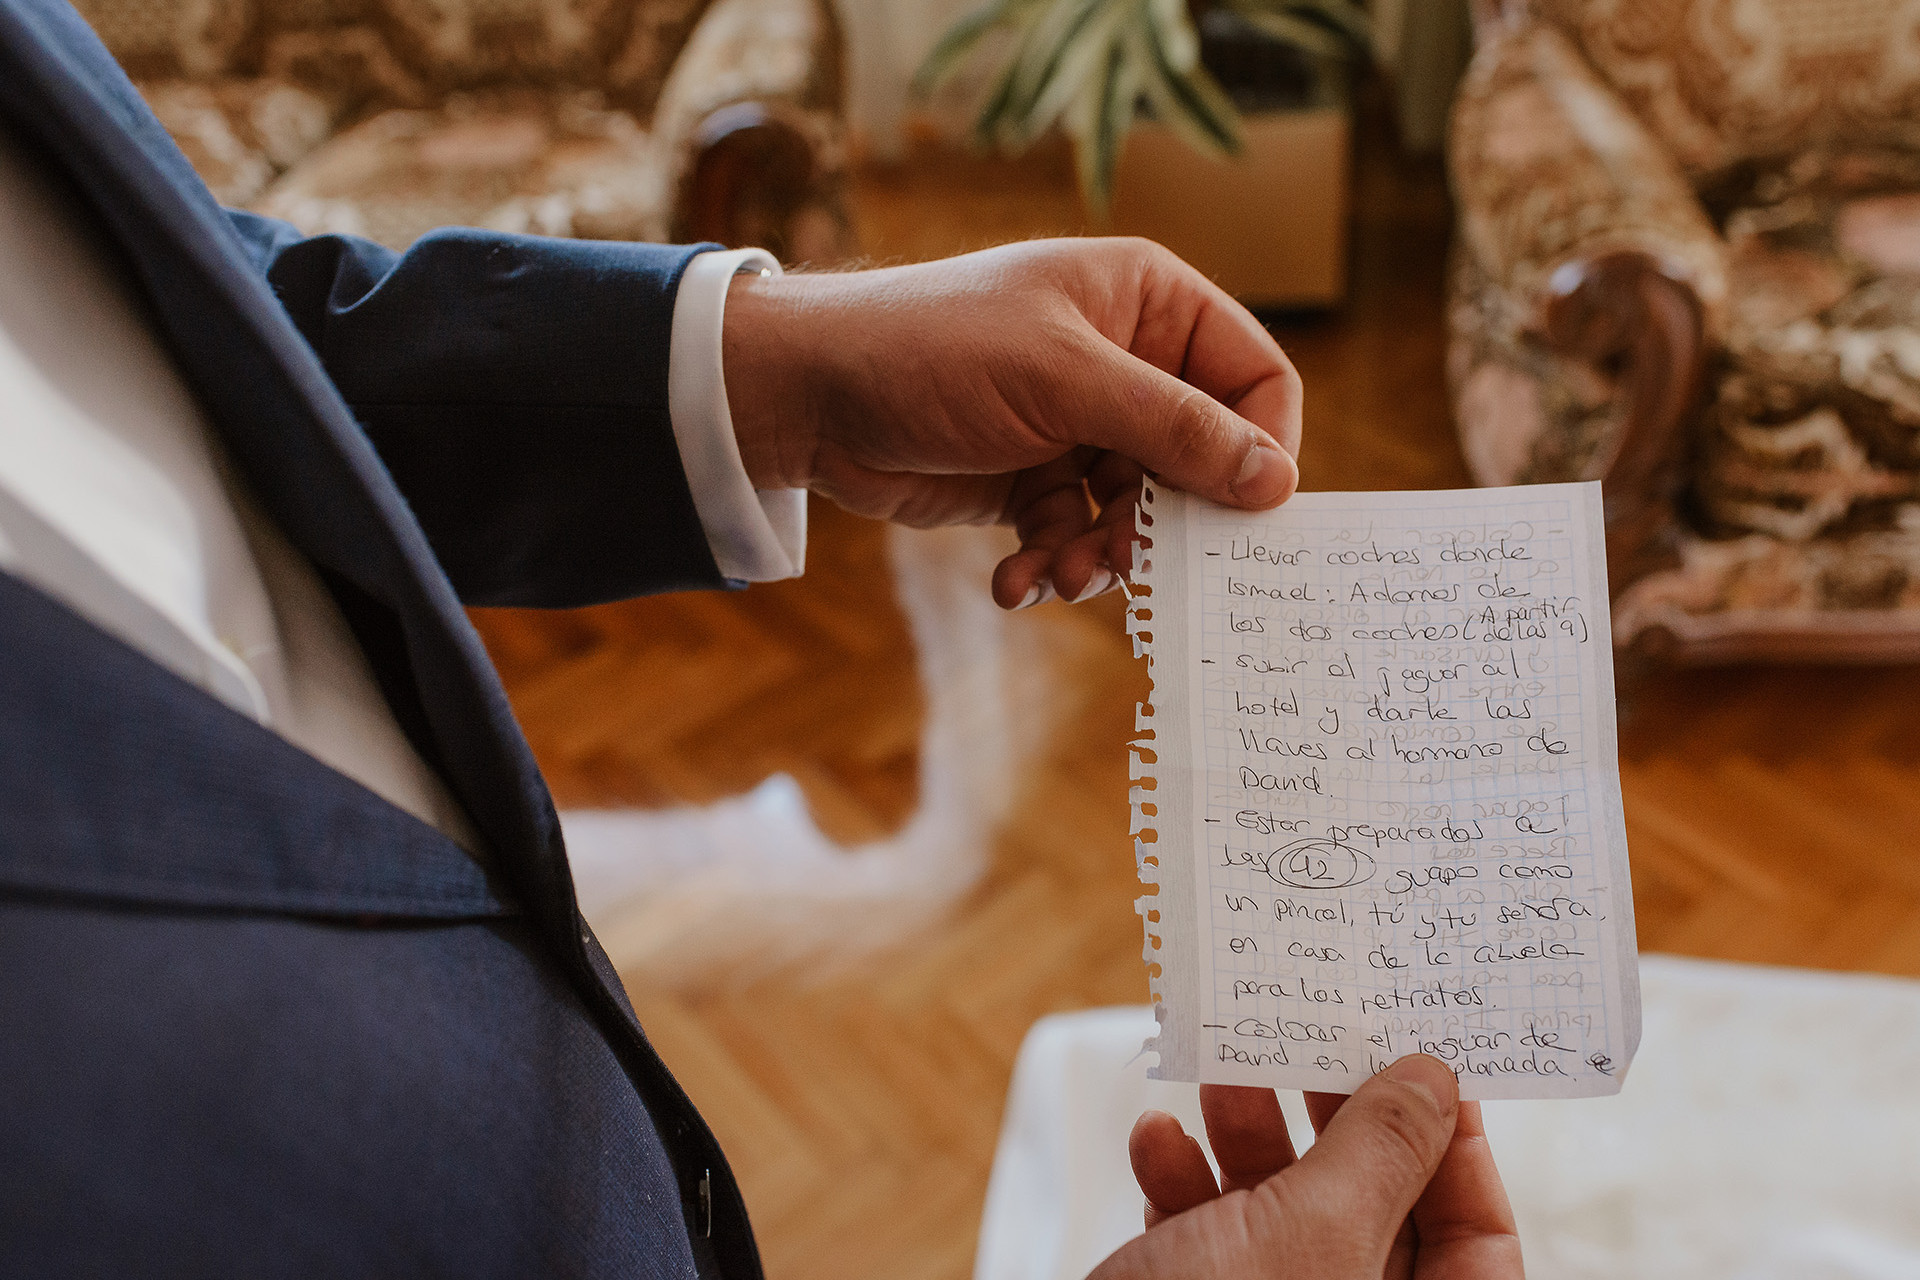 - Llevar coches donde
Ismael: Adornos de
los dos coches (A partir de las 9)
- Subir el jaguar al
hotel y darle las
llaves al hermano de
David.
- Estar preparados a
las 12 guapo como
un pincel, tú y tu señora,
en casa de la abuela
para los retratos.
- Colocar el jaguar de
David en la explanada.